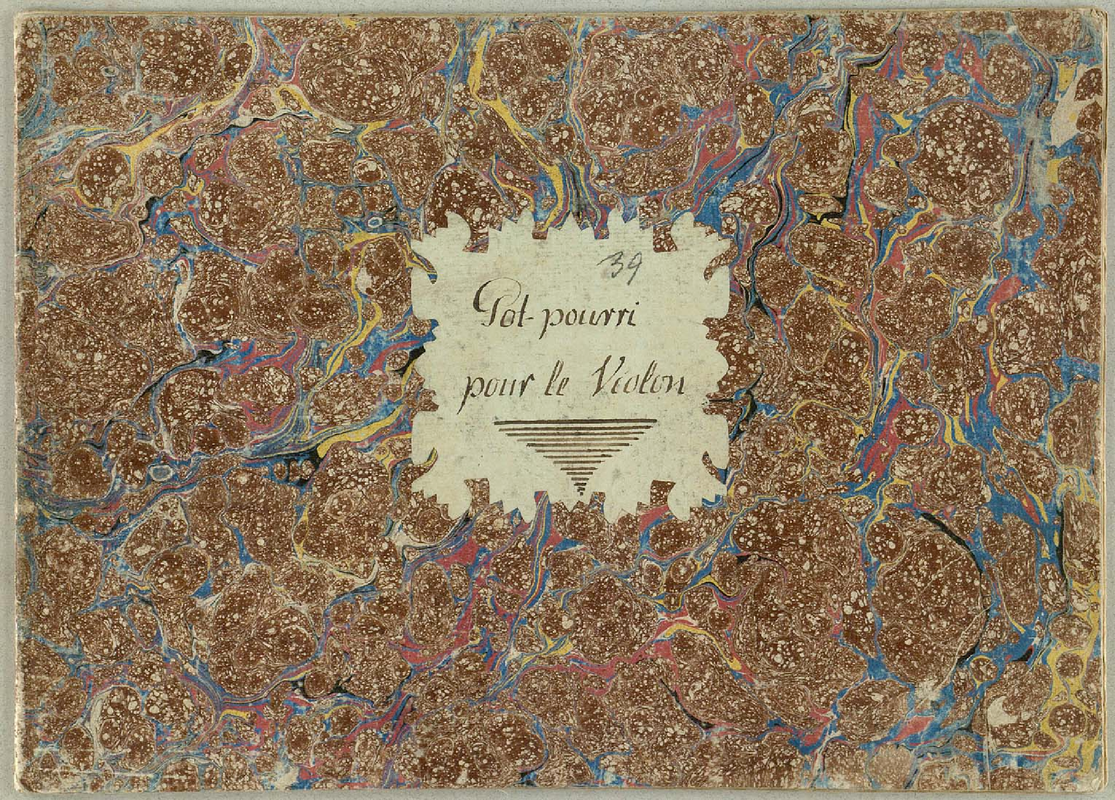 39
Pot-pourri
pour le Violon